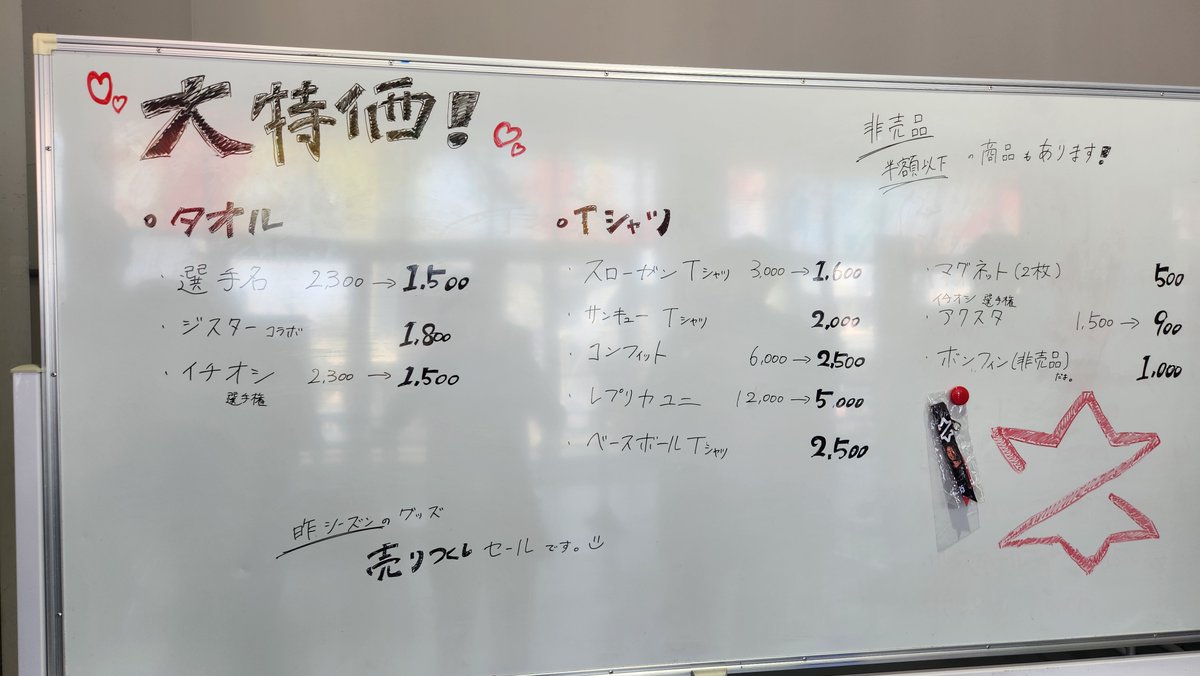 大特価!
非売品
半額以下の商品もあります!
・タオル
・選手名 2,300→1,500
・ジスターコラボ 1,800
・イチオシ 2,300→1,500
選手権
・Tシャツ
・スローガンTシャツ 3,000→1,600
・サンキューTシャツ 2,000
・コンフィット 6,000→2,500
・レプリカユニ 12,000→5,000
・ベースボールTシャツ 2,500
・マグネット(2枚) 500
イチオシ 選手権
・アクスタ 1,500→900
・ボンフィン(非売品) 1,000
だよ。
昨シーズンのグッズ
売りつくしセールです。